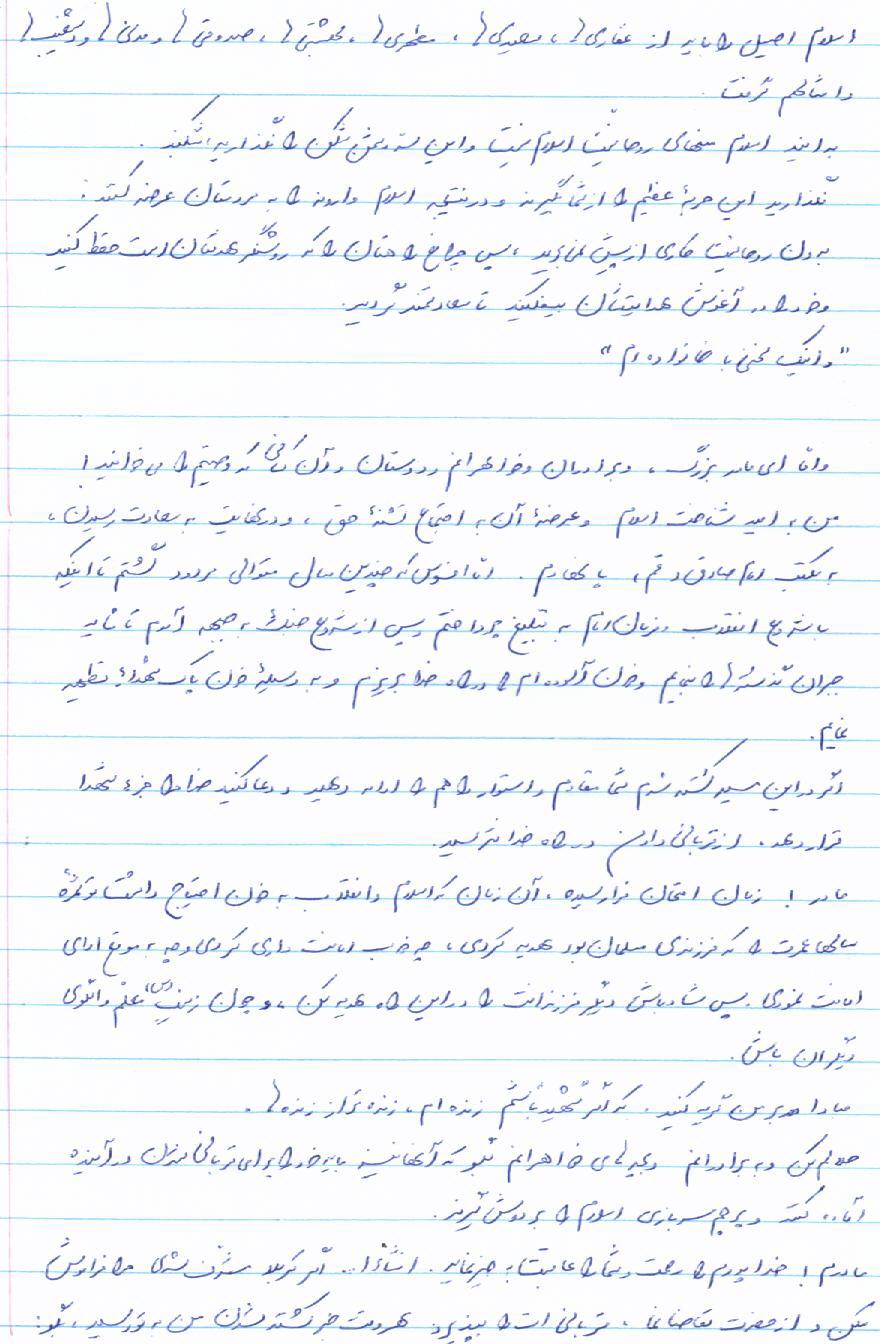 اسلام اصیل را باید از غفاری‌ها، سعیدی‌ها، مطهری‌ها، بهشتی‌ها، صدوقی‌ها و مدنی‌ها و دستغیب‌ها
و امثالهم گرفت.
بدانید اسلام منهای روحانیّت اسلام نیست و این سد دشمن شکن را نگذارید بشکنند.
نگذارید این حربهٔ عظیم را از شما بگیرند و در نتیجه اسلام وارونه را به مردمتان عرضه کنند.
بدون روحانیت کاری از پیش نمی‌برید، پس چراغ راهتان را که روشنگر هدفتان است حفظ کنید
و خود را در آغوش هدایتشان بیفکنید تا سعادتمند گردید.
"و اینک سخنی با خانواده‌ام"
و امّا ای مادر بزرگ، و برادران و خواهرانم و دوستان و آن کسانی که وصیتم را می‌خوانید!
من به امید شناخت اسلام و عرضهٔ آن به اجتماع تشنهٔ حق، و در نهایت به سعادت رسیدن،
به مکتب امام صادق در قم، پا نهادم. امّا افسوس که چندین سال متوالی مردود گشتم تا اینکه
با شروع انقلاب و فرمان امام به تبلیغ پرداختم و پس از شروع جنگ به جبهه آمدم تا شاید
جبران گذشته‌ها را بنمایم و خون آلوده‌ام را در راه خدا بریزم و به وسیلهٔ خون پاک شهداء تطهیر
نمایم.
اگر در این مسیر کشته شدم شما مقاوم و استوار راهم را ادامه دهید و دعا کنید خدا مرا جزء شهدا
قرار دهد. از قربانی دادن در راه خدا نترسید.
مادر! زمان امتحان فرا رسیده، آن زمان که اسلام و انقلاب به خون احتیاج داشت تو ثمرهٔ
سالها عمرت را که فرزندی مسلمان بود هدیه کردی، چه خوب امانت داری کردی و چه به موقع ادای
امانت نمودی. پس شاد باش و دیگر فرزندانت را در این راه هدیه کن، و چون زینب (س) معلّم و الگوی
دیگران باش.
مبادا بر من گریه کنید. که اگر شهید باشم زنده‌ام، زنده‌تر از زنده‌ها.
حلالم کن و به برادرانم و بچه‌های خواهرانم بگو که آنها نیز باید خود را برای قربانی شدن در آینده
آماده کنند و پرچم سربازی اسلام را بر دوش گیرند.
مادرم! خدا پدرم را رحمت و شما را عاقبت به خیر نماید. انشاءا... اگر کربلا مشرّف شدی مرا فراموش
مکن و از حضرت تقاضا نما، قربانی‌ات را بپذیرد. هر وقت خبر کشته شدن من به تو رسید، بگو: